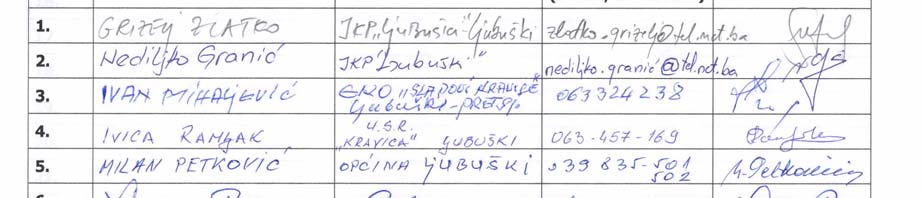 1. GRIZELJ ZLATKO JKP „Ljubušia" Ljubuški zlatko.grizelj@tel.net.ba
2. Nediljko Granić JKP „Ljubuški" nediljko.granić@tel.net.ba
3. IVAN MIHALJEVIĆ EKO „SLAPOVI KRAVICE"
Ljubuški- 063324238
4. IVICA RAMLJAK U.S.R.
„KRAVICA" LJUBUŠKI 063-457-169
5. MILAN PETKOVIĆ OPĆINA LJUBUŠKI 039 835-501
502 M. Petković